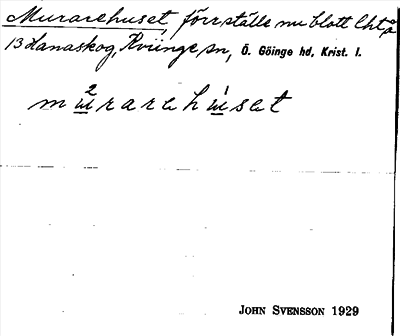 Murarehuset, förr ställe nu blott lht å
13 Hanaskog, Kviinge sn, Ö. Göinge hd, Krist. l.
2 1
murarehuset
JOHN SVENSSON 1929